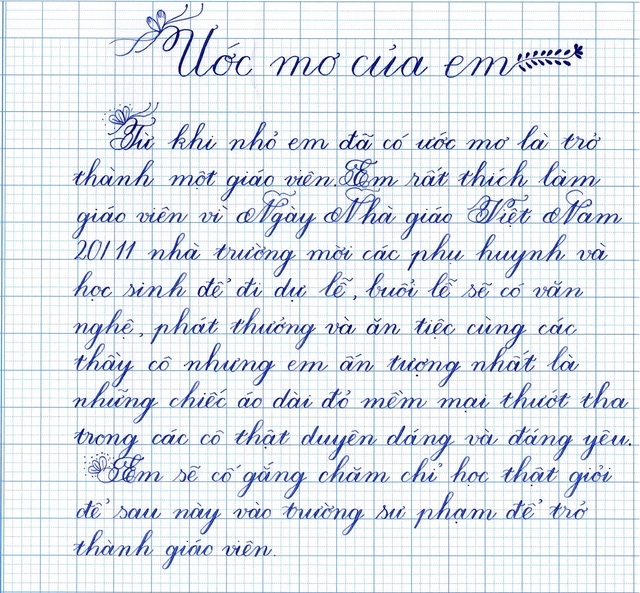 Ước mơ của em
Từ khi nhỏ em đã có ước mơ là trở
thành một giáo viên. Em rất thích làm
giáo viên vì Ngày Nhà giáo Việt Nam
20/11 nhà trường mời các phu huynh và
học sinh để đi dự lễ, buổi lễ sẽ có văn
nghệ, phát thưởng và ăn tiệc cùng các
thầy cô nhưng em ấn tượng nhất là
những chiếc áo dài đỏ mềm mại thướt tha
trong các cô thật duyên dáng và đáng yêu.
Em sẽ cố gắng chăm chỉ học thật giỏi
để sau này vào trường sư phạm để trở
thành giáo viên.